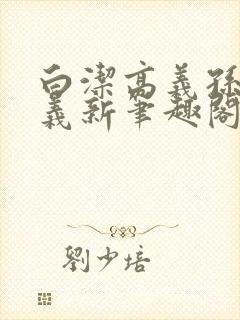 白潔高義孫
義新筆趣閣
劉少培